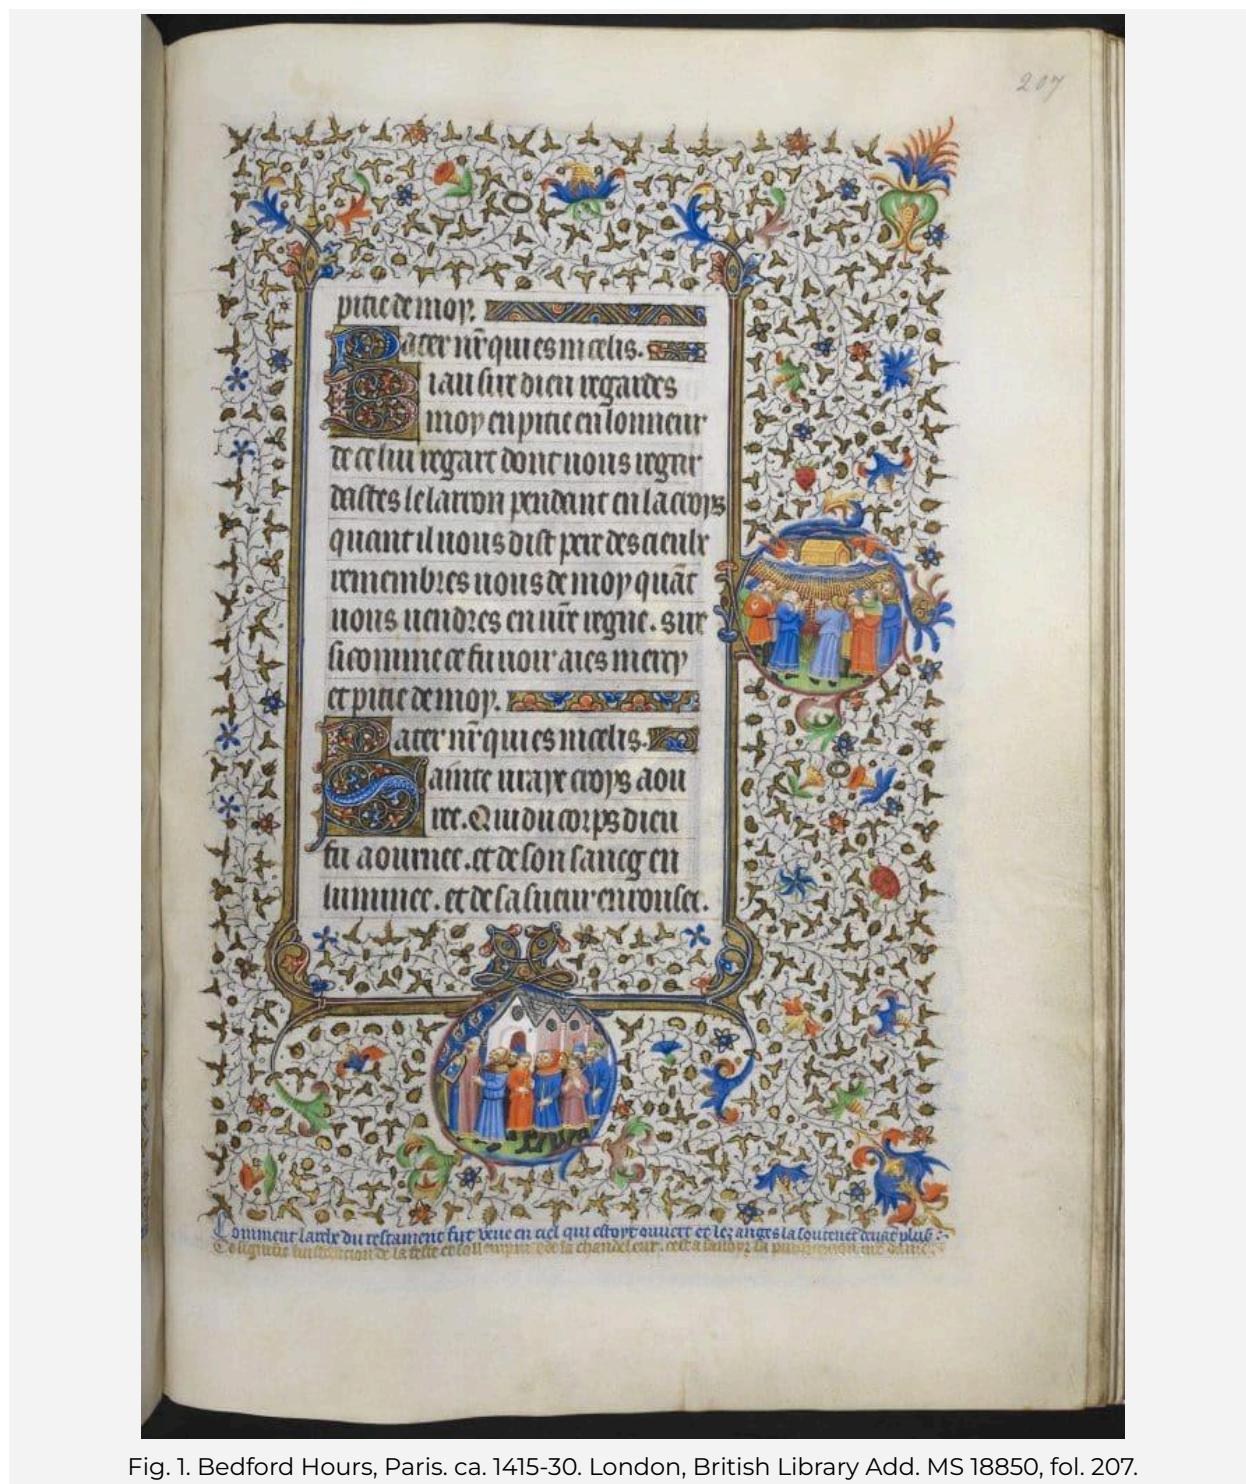 207
pitie de moy.
Pater nr̄ qui es in celis.
Biau sire dieu regardes
moy en pitie en lonneur
de celui regart dont vous regar
dastes le larron pendant en la croys
quant il vous dist pere des cieulx
remembres vous de moy quāt
vous vendres en vr̄e regne. sire
si comme ce fu voir aies mercy
et pitie de moy.
Pater nr̄ qui es in celis.
Sainte vraye croys aou
ree. Qui du corps dieu
fu aournee. et de son sancg en
luminee. et de sa sueur enrousee.
Comment larche du testament fut veue en ciel qui estoyt ouvert et les anges la
de la feste et de la chandeleur. cest a
Fig. 1. Bedford Hours, Paris. ca. 1415-30. London, British Library Add. MS 18850, fol. 207.